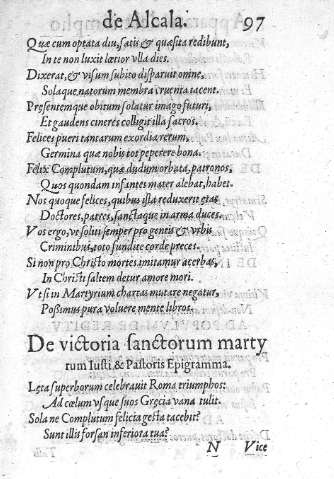 de Alcala. 97
Quæ cum optata diu, satis & quæsita redibunt,
In te non luxit lætior vlla dies.
Dixerat, & visum subito disparuit omne,
Solaque natorum membra iacent.
Præsentemque obitum solatur imago futuri,
Et gaudens cineres collegit illa sacros.
Felices pueri tantarum exordia rerum,
Germina quæ nobis tot peperere bona.
Felix Complutum, quæ dudum orbata, patronos,
Quos quondam infantes mater alebat, habet.
Nos quoque felices, quibus illa reduxerit ætas
Doctores, patres, sanctaque in arma duces.
Vos ergo, ve soluti semper pro gentis & vrbis
Criminibus, toto fundite corde preces.
Si non pro Christo mortes imitamur acerbas,
In Christi saltem detur amore mori.
Vt si in Martyrium chartas mutare negatur,
Possimus pura voluere mente libros.
De victoria sanctorum marty
rum Iusti & Pastoris Epigramma.
Læta superborum celebrauit Roma triumphos:
Ad cœlum vsque suos Græcia vana tulit.
Sola ne Complutum felicia gesta tacebit?
Sunt illis forsan inferiora tua?
N Vice